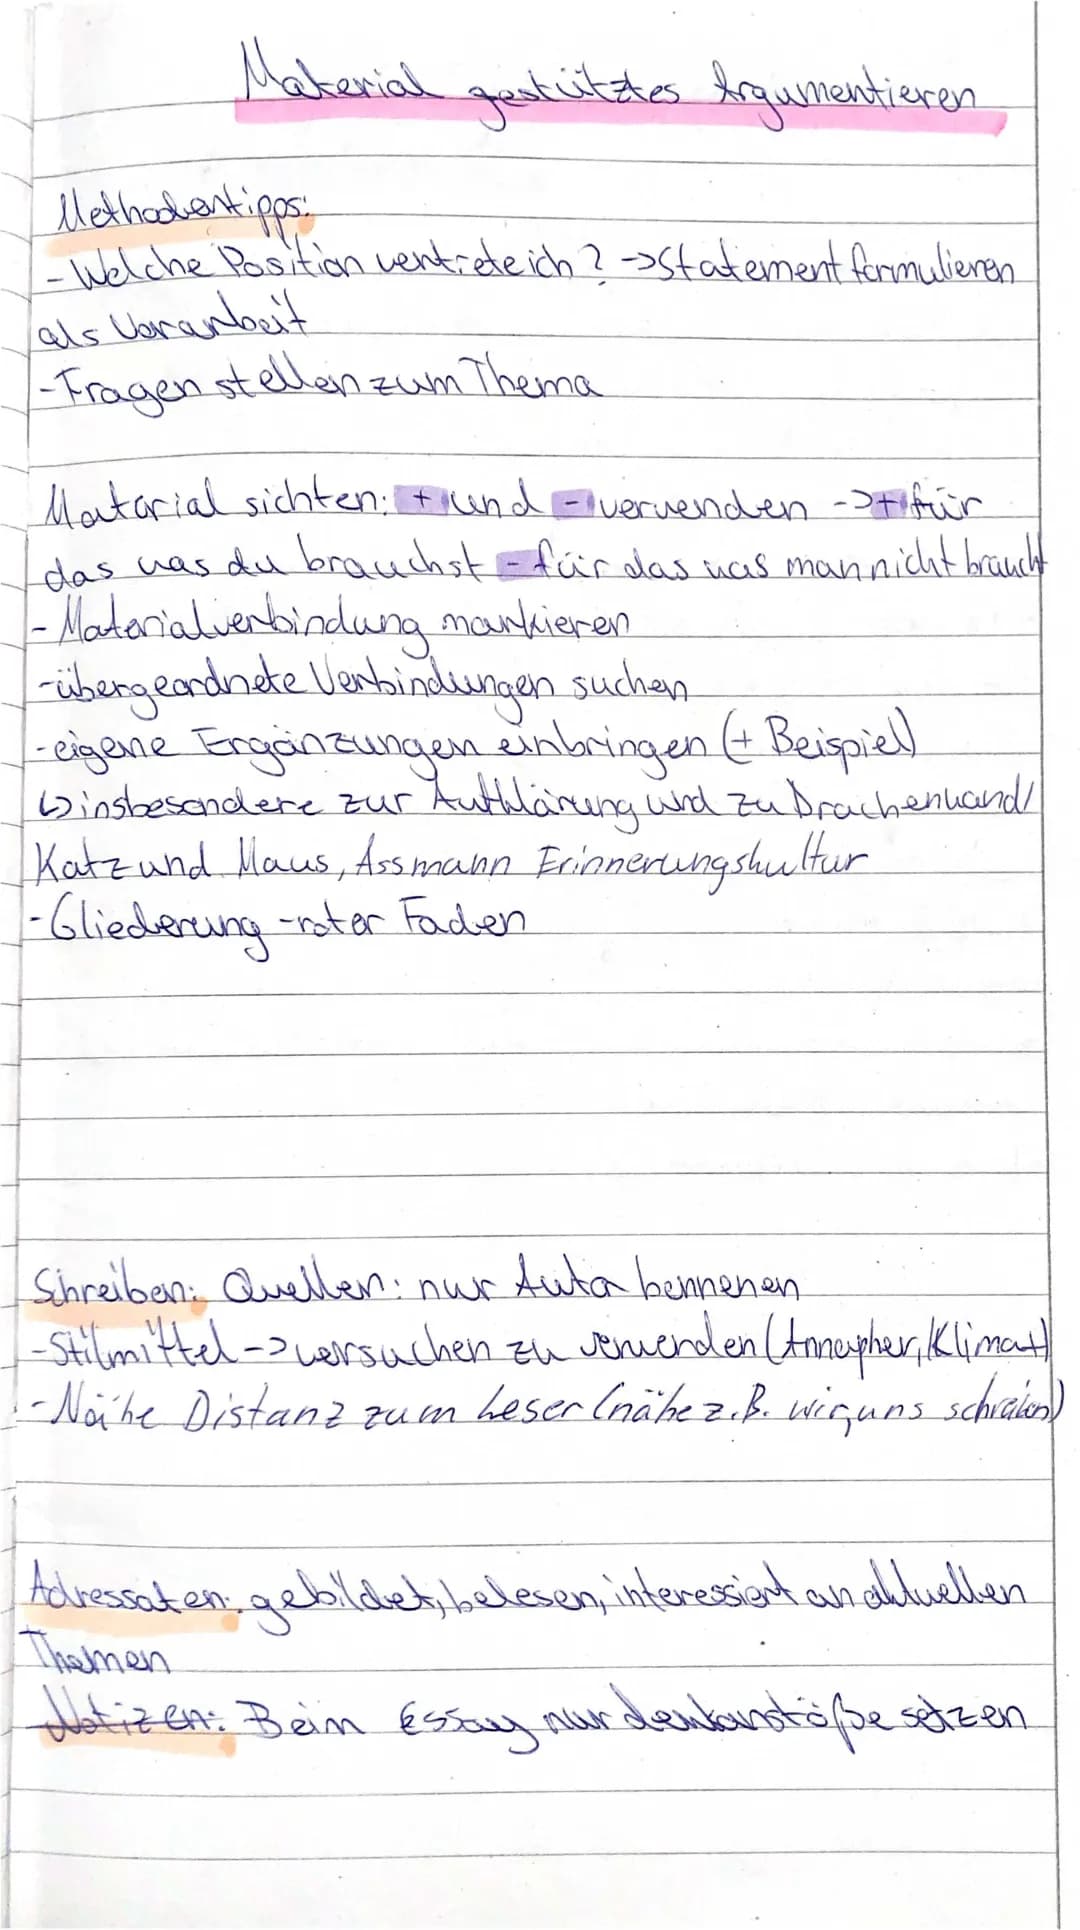 Material gestütztes Argumentieren
Methodentipps:
- Welche Position vertrete ich? -> Statement formulieren
als Vorarbeit
- Fragen stellen zum Thema
Material sichten: + und - verwenden -> + für
das was du brauchst - für das was man nicht braucht
- Materialverbindung markieren
- übergeordnete Verbindungen suchen
- eigene Ergänzungen einbringen (+ Beispiel)
↳ insbesondere zur Aufklärung und zu Drachenwand/
Katz und Maus, Assmann Erinnerungskultur
- Gliederung - roter Faden
Schreiben: Quellen: nur Autor bennenen
- Stilmittel -> versuchen zu verwenden (
- Nähe Distanz zum Leser (nähe z.B. wir, uns schreiben)
Adressaten: gebildet, belesen, interessiert an aktuellen
Themen
Notizen: Beim Essay nur denkanstöße setzen